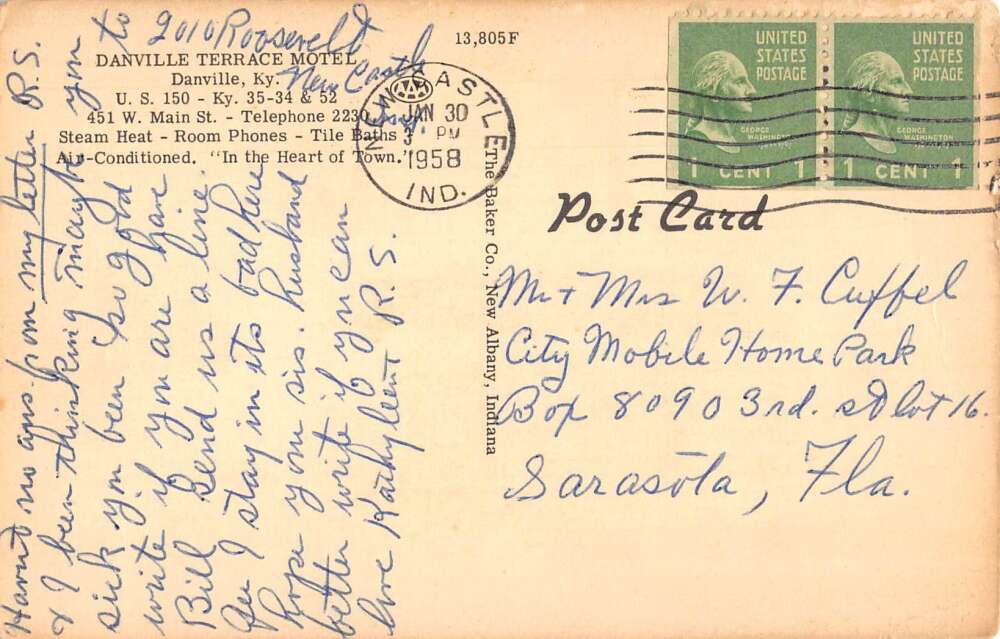 2010 Roosevelt
New Castle
Ind.
DANVILLE TERRACE MOTEL
Danville, Ky.
U. S. 150 - Ky. 35-34 & 52
451 W. Main St. - Telephone 2230
Steam Heat - Room Phones - Tile Baths
Air-Conditioned. "In the Heart of Town."
Havnt no ans. from my letter R.S.
& I been thinking maybe you to
sick you been so good
write if you are have
Bill send us a line.
I stay in its bad here
hope you sis. husband
better write if you can
love Kathyleen & R.S.
13,805F
The Baker Co., New Albany, Indiana
NEW CASTLE
JAN 30
3 PM
1958
IND.
UNITED
STATES
POSTAGE
GEORGE
WASHINGTON
1 CENT 1
UNITED
STATES
POSTAGE
GEORGE
WASHINGTON
1 CENT 1
Post Card
Mr + Mrs W. F. Cuffel
City Mobile Home Park
Box 8090 3rd. st lot 16.
Sarasota, Fla.